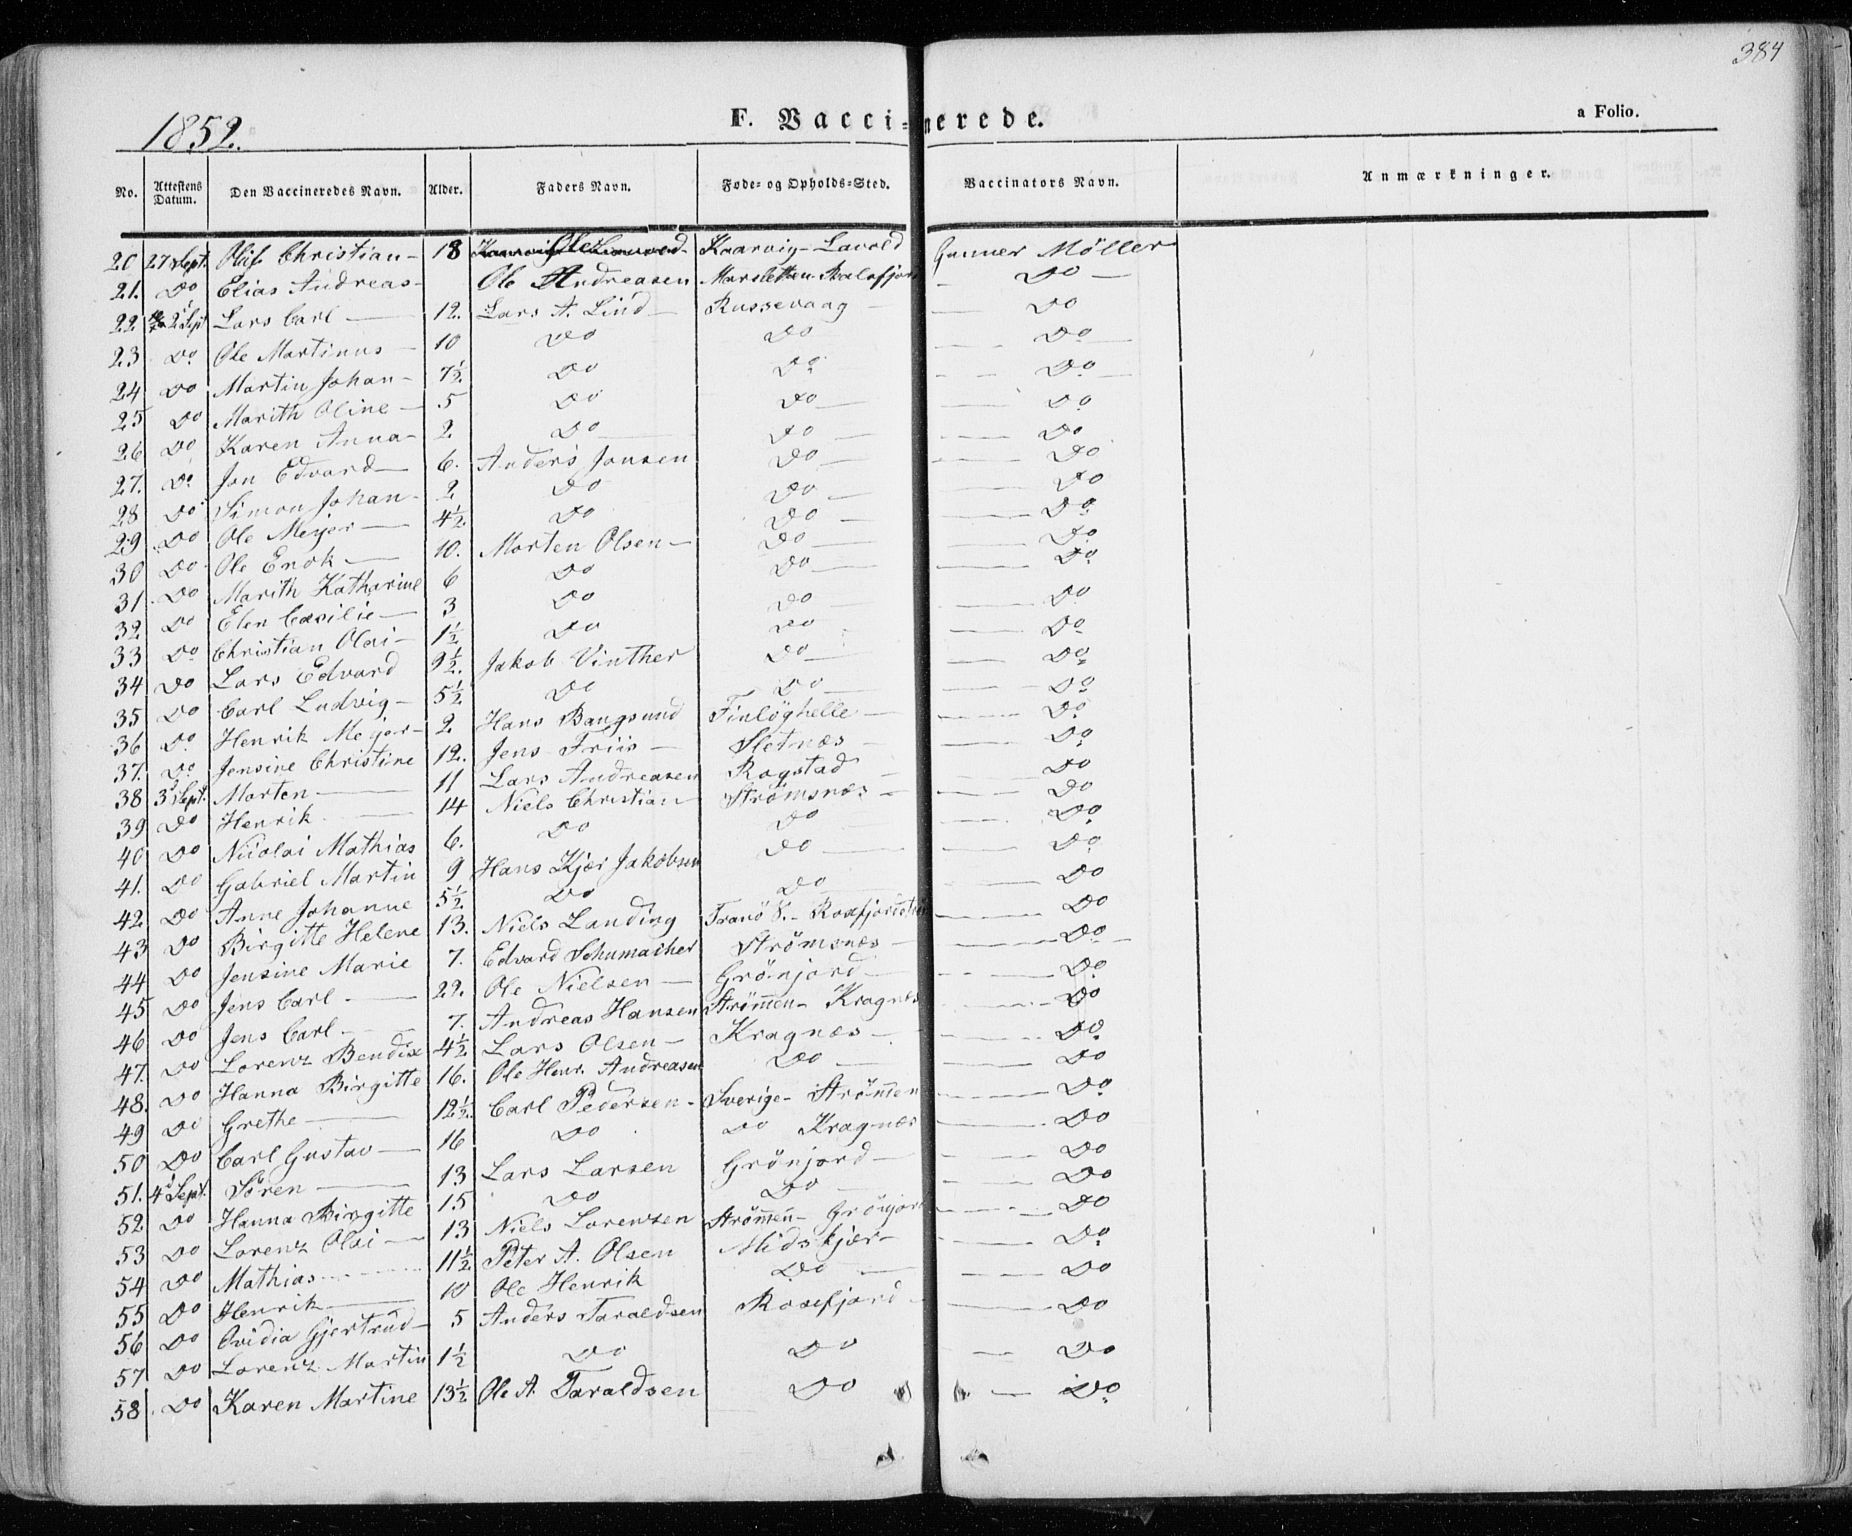 384
1852. F. Vaccinerede. a Folio.
No. Attestens Datum. Den Vaccineredes Navn. Alder. Faders Navn. Føde- og Opholds-Sted. Vaccinators Navn. Anmærkninger.
20 27 Sept. Christian 18 Ole Kaarvig - Lavold Gunner Möller
21. Do Elias Andreas Ole Andreasen Do
22 2 Sept Lars Carl 12. Lars A. Lind Russevaag Do
23 Do Ole Martinus 10 Do Do Do
24 Do Martin Johan 7½ Do Do Do
25 Do Marith Oline 5 Do Do Do
26 Do Karen Anna 2 Do Do Do
27. Do Jon Edvard 6. Anders Jonsen Do Do
28 Do Simon Johan 2 Do Do Do
29 Do Ole Meyer 4½ Do Do Do
30 Do Ole Enok 10. Morten Olsen Do Do
31 Do Marith Katharine 6 Do Do Do
32 Do Elen Cæcilie 3 Do Do Do
33 Do Christian Olai 1½ Do Do Do
34 Do Lars Edvard 9½ Jakob Vinther Do Do
35 Do Carl Ludvig 5½ Do Do Do
36 Do Henrik Meyer 2 Hans Bangsund Finlöghelle Do
37. Do Jensine Christine 12. Jens Friis Sletnæs Do
38 3 Sept. Morten 11 Lars Andreasen Rogstad Do
39 Do Henrik 14 Niels Christian Strömsnæs Do
40 Do Nicolai Mathias 6. Do Do Do
41. Do Gabriel Martin 9 Hans Kjær Jakobsen Do Do
42. Do Anne Johanne 5½ Do Do Do
43 Do Birgitte Helene 13. Niels Landing Tranö Do
44 Do Jensine Marie 7. Edvard Schumacher Strömsnæs Do
45 Do Jens Carl 22. Ole Nielsen Grönjord Do
46 Do Jens Carl 7. Andreas Hansen Strömen - Kragnæs Do
47. Do Lorenz Bendix 4½ Lars Olsen Kragnæs Do
48. Do Hanna Birgitte 16. Ole Henr. Andreasen Do Do
49 Do Grethe 12½ Carl Pedersen Sverige - Strömen Do
50 Do Carl Gustav 16 Do Do Kragnæs Do
51. 4 Sept. Sören 13 Lars Larsen Grönjord Do
52 Do Hanna Birgitte 15 Do Do Do
53 Do Lorenz Olai 13 Niels Lorenzen Strömen - Grönjord Do
54 Do Mathias 11½ Peter A. Olsen Midskjær Do
55 Do Henrik 10 Ole Henrik Do Do
56 Do Ovidia Gjertrud 5 Anders Taraldsen Rosefjord Do
57 Do Lorenz Martin 1½ Do Do Do
58 Do Karen Martine 13½ Ole A. Taraldsen Do Do